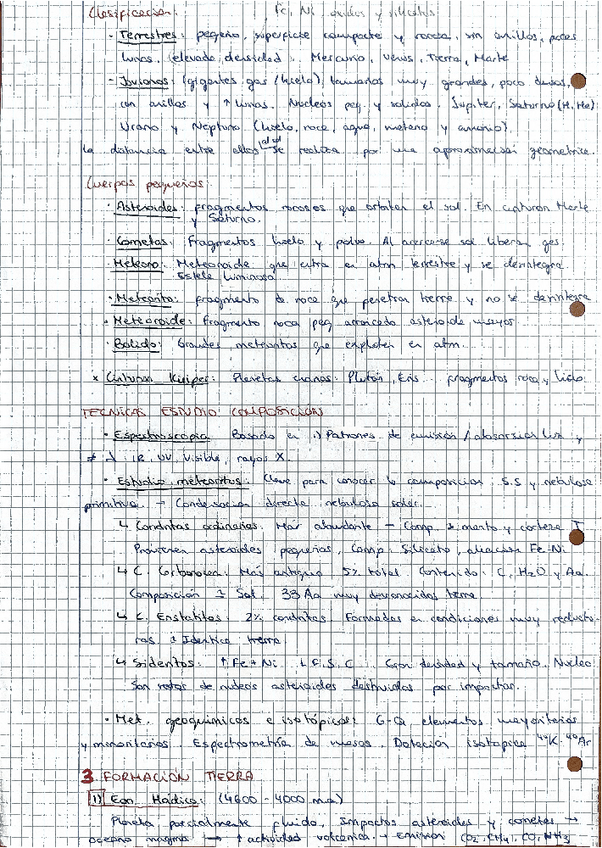 Clasificación: Fe, Ni, óxidos y silicatos
· Terrestres: pequeño, superficie compacta y rocosa, sin anillos, pocas
lunas, (elevada densidad). Mercurio, Venus, Tierra, Marte
· Jovianos: (gigantes gas/hielo), tamaños muy grandes, poco densos,
con anillos y ↑ lunas. Núcleos peq. y solidos. Jupiter, Saturno (H, He)
Urano y Neptuno (hielo, roca, agua, metano y amonio).
La distancia entre ellos se realiza por una aproximación geométrica.
Cuerpos pequeños:
· Asteroides: fragmentos rocosos que orbitan el sol. En cinturon Marte
y Saturno.
· Cometas: Fragmentos hielo y polvo. Al acercarse sol liberan gas.
· Meteoro: Meteoroide que entra en atm terrestre y se desintegra.
Estela luminosa
· Meteorito: fragmento de roca que penetra tierra y no se desintegra
· Meteoroide: fragmento roca peq arrancado asteroide mayor.
· Bólido: Grandes meteoritos que explotan en atm.
* Cinturon Kuiper: Planetas enanos: Plutón, Eris... fragmentos roca y hielo
TECNICAS ESTUDIO COMPOSICIÓN
· Espectroscopia Basado en Patrones de emisión / absorción luz y
≠ λ. IR, UV, visible, rayos X.
· Estudio meteoritos: Clave para conocer la composición S.S y nebulosa
primitiva → Condensación directa nebulosa solar.
↳ Condritas ordinarias. Más abundante - Comp. manto y corteza T
Provienen asteroides pequeños, Comp. Silicato, aleación Fe-Ni
↳ C. Carbonaceas: Más antigua 5% total. Contenido: C, H2O y Aa.
Composición Sol. 33 Aa muy desconocidos tierra.
↳ C. Enstatitas: 2% condritas. Formadas en condiciones muy reducto-
ras. Identica tierra.
↳ Sideritos: ↑ Fe + Ni, S, C. Gran densidad y tamaño. Nucleo.
Son restos de núcleos asteroides destruidos por impactos.
· Met. geoquímicos e isotópicos: G-Q, elementos mayoritarios
y minoritarios. Espectrometría de masas. Datación isotopica ⁴⁰K-⁴⁰Ar
3. FORMACIÓN TIERRA
1) Eon Hádico: (4600 - 4000 m.a)
Planeta parcialmente fluido, Impactos asteroides y cometas →
oceano magma → ↑ actividad volcanica → emisión CO2, CH4, CO, NH3